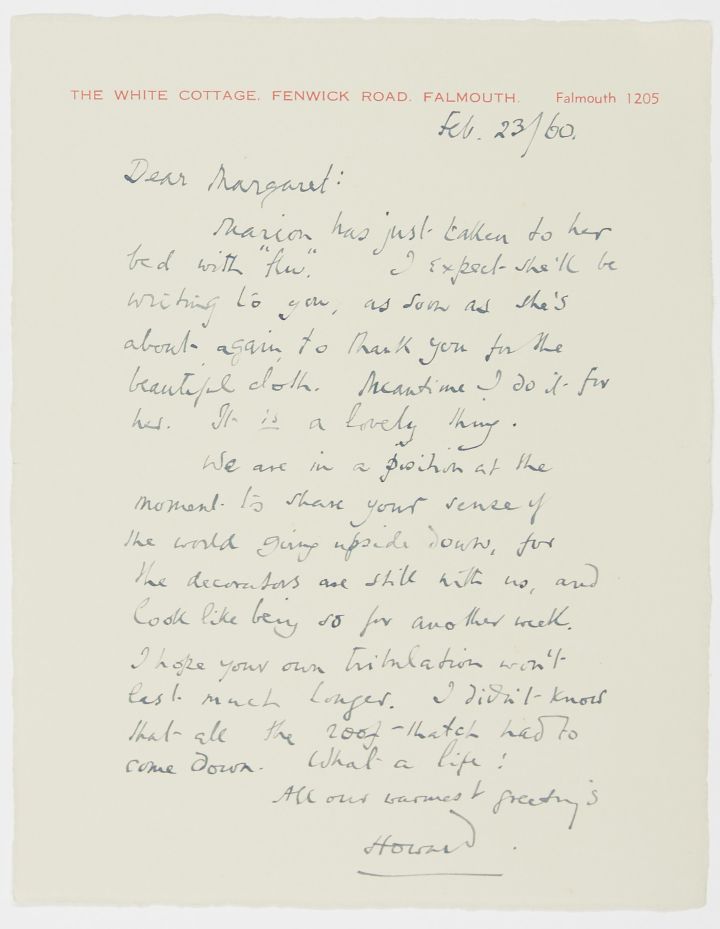 THE WHITE COTTAGE. FENWICK ROAD. FALMOUTH. Falmouth 1205
Feb. 23/60.
Dear Margaret:
Marion has just taken to her
bed with "flu". I expect she'll be
writing to you, as soon as she's
about again, to thank you for the
beautiful cloth. Meantime I do it for
her. It is a lovely thing.
We are in a position at the
moment to share your sense of
the world going upside down, for
the decorators are still with us, and
look like being so for another week.
I hope your own tribulation won't
last much longer. I didn't know
that all the roof-thatch had to
come down. What a life!
All our warmest greetings
Howard